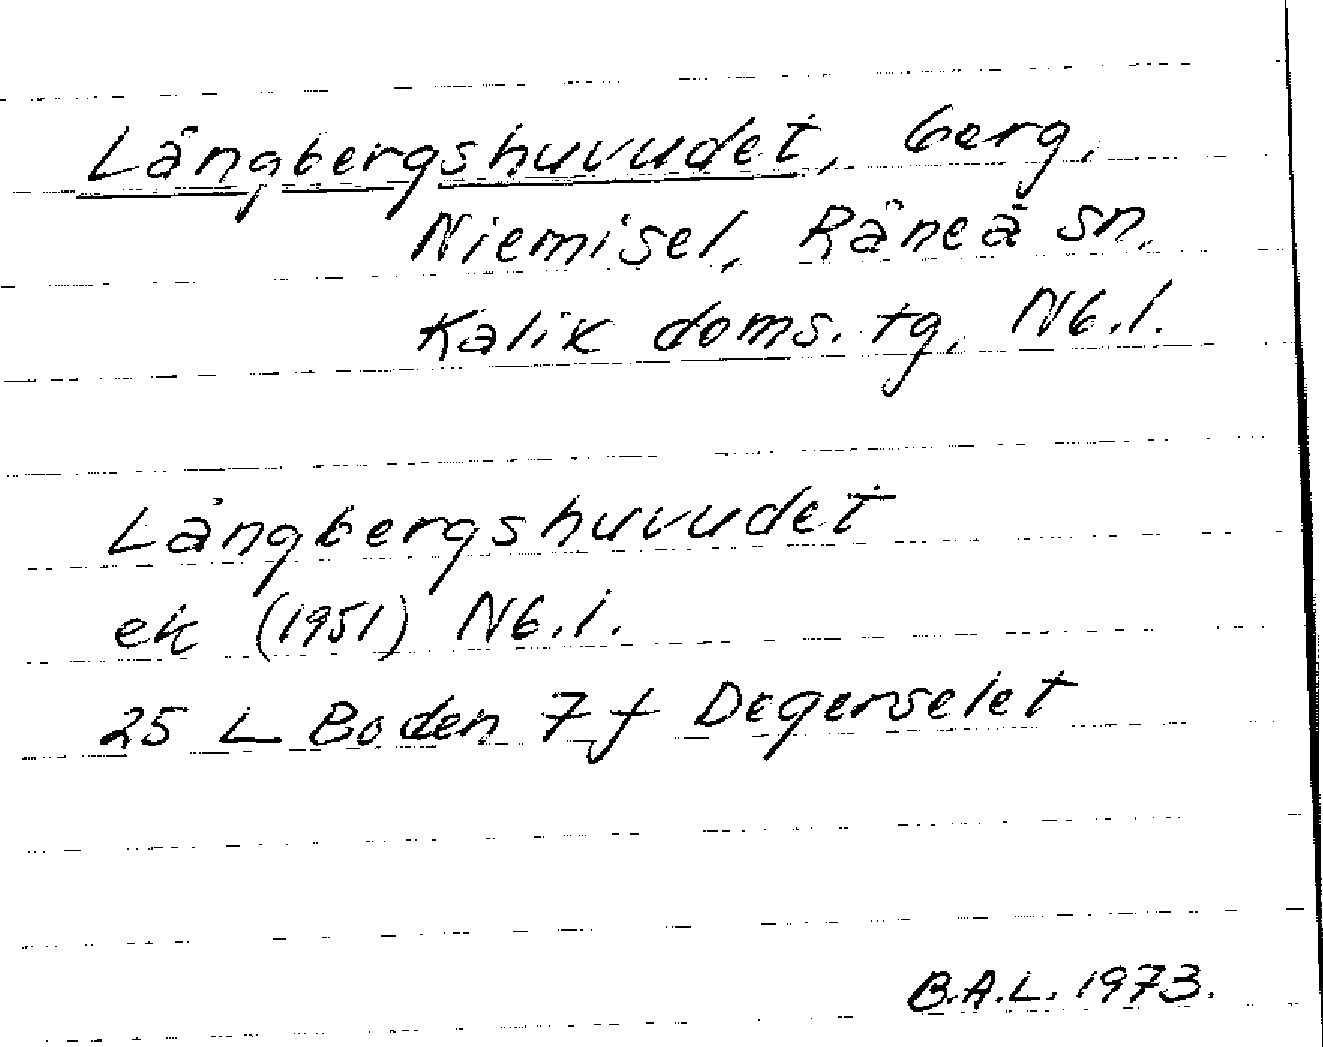 Långbergshuvudet, berg,
Niemisel, Råneå sn.
Kalix doms. tg, Nb.l.
Långbergshuvudet
ek (1951) Nb.l.
25 L Boden 7 f Degerselet
B.A.L. 1973.